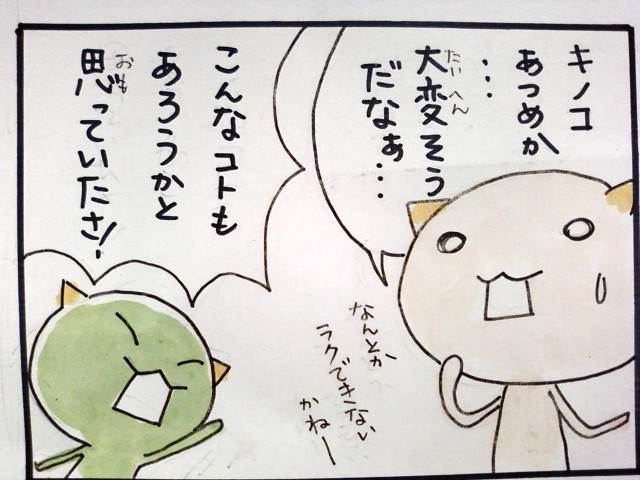 キノコ
あつめか
・・・
大変そう
だなぁ・・・
なんとか
ラクできない
かねー
こんなコトも
あろうかと
思っていたさ!